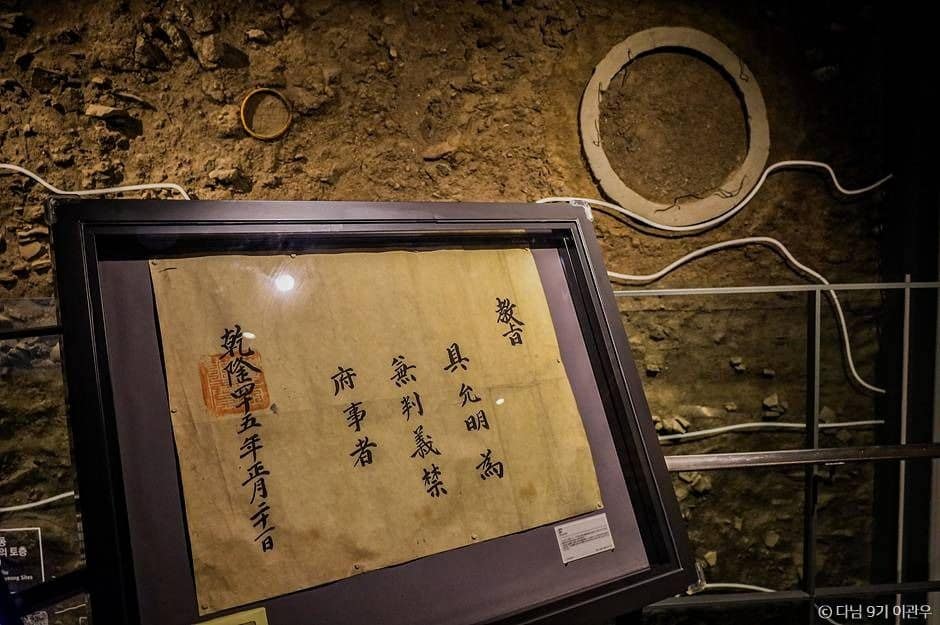 教旨
具允明為
兼判義禁
府事者
乾隆四十五年正月二十一日
의 토층
Sites
© 다님 9기 이관우